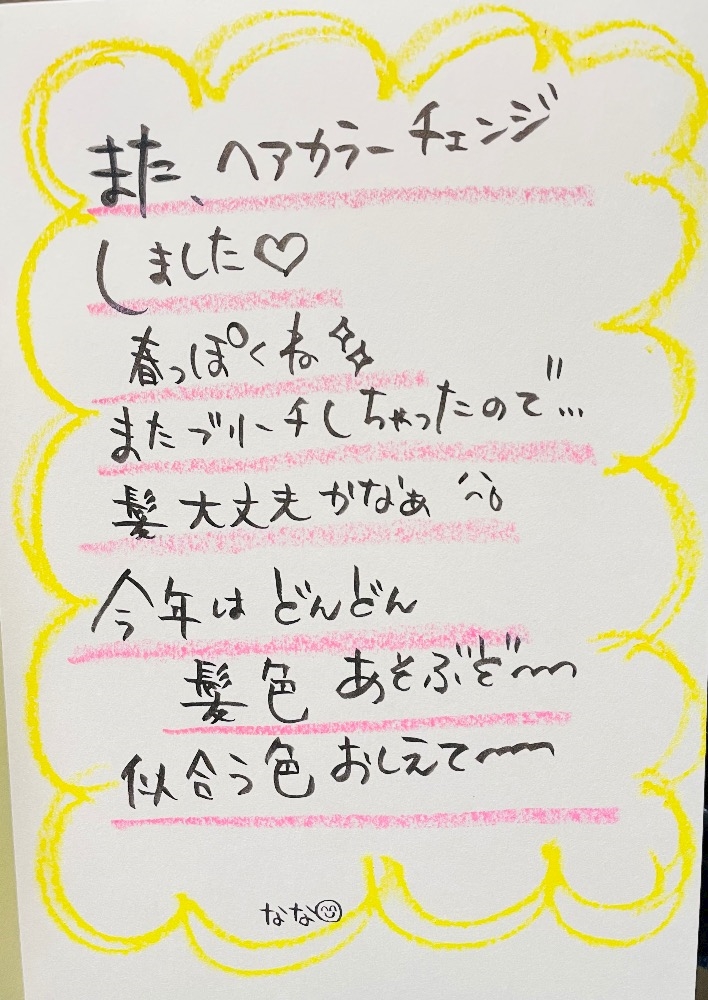 また、ヘアカラーチェンジ
しました♡
春っぽくね✨
またブリーチしちゃったので…
髪大丈夫かなぁ
今年はどんどん
髪色あそぶぞ〜
似合う色おしえて〜
なな☺